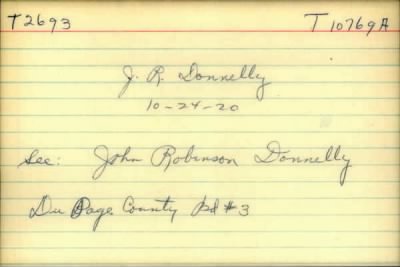 T2693 T10769A
J. R. Donnelly
10-24-20
See: John Robinson Donnelly
Du Page County Bd #3